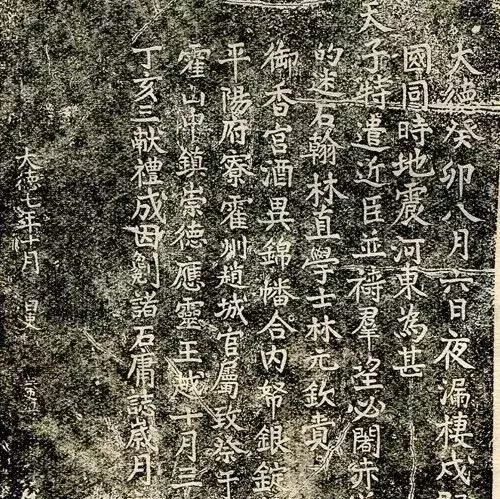 大德癸卯八月六日夜漏棲戌
國同時地震河東為甚
天子特遣近臣並禱羣望必闍赤
的迷石翰林直學士林元欽賫
御香宮酒異錦幡合內帑銀錠
平陽府寮霍州趙城官屬致祭于
霍山中鎮崇德應靈王越十月三
丁亥三獻禮成因劖諸石庸誌歲月
大德七年十月 日